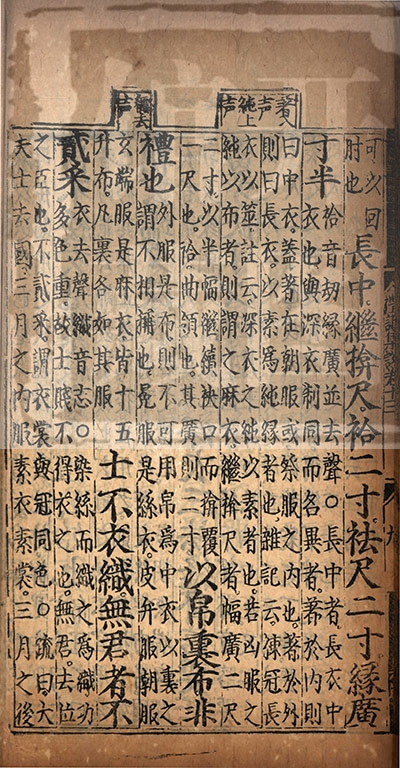 著入声
純上声
去声
可以回
肘也
長中繼揜尺袷二寸袪尺二寸緣廣
寸半
袷音劫緣廣並去聲○長中者長衣中
衣也與深衣制同而名異者著於內則
曰中衣蓋著在朝服或祭服之內也著於外
則曰長衣以素爲純緣者也雜記云練冠長
衣以筮註云深衣之純以素者也若凶服之
純以布者則謂之麻衣繼揜尺者幅廣二尺
二寸以半幅繼續袂口而揜覆
一尺也袷曲領也其廣則二寸
以帛裏布非
禮也
外服是布則不可用帛爲中衣以裏之
謂不相稱也冕服是絲衣皮弁服朝服
玄端服是麻衣皆十五
升布凡裏各如其服
士不衣織無君者不
貳采
衣去聲織音志○染絲而織之爲織功
多色重故士賤不得衣之也無君去位
之臣也不貳采謂衣裳與冠同色○疏曰大
夫士去國三月之內服素衣素裳三月之後